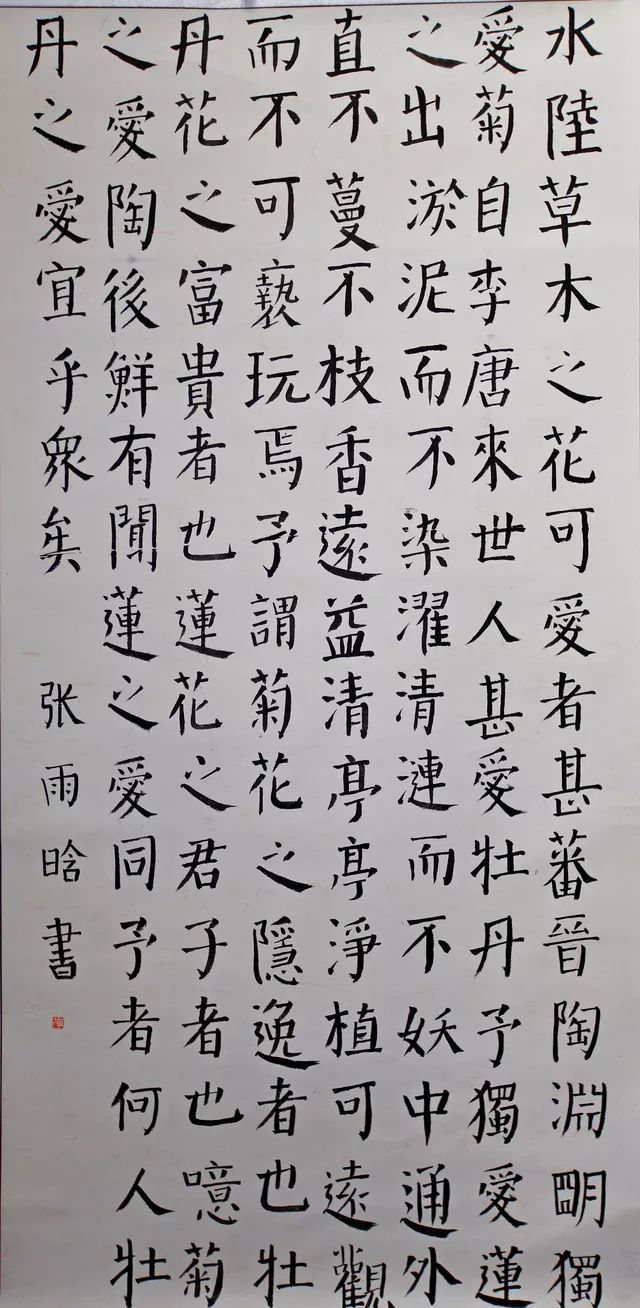 水陸草木之花可愛者甚蕃晉陶淵明獨
愛菊自李唐來世人甚愛牡丹予獨愛蓮
之出淤泥而不染濯清漣而不妖中通外
直不蔓不枝香遠益清亭亭淨植可遠觀
而不可褻玩焉予謂菊花之隱逸者也牡
丹花之富貴者也蓮花之君子者也噫菊
之愛陶後鮮有聞蓮之愛同予者何人牡
丹之愛宜乎眾矣
张雨晗書